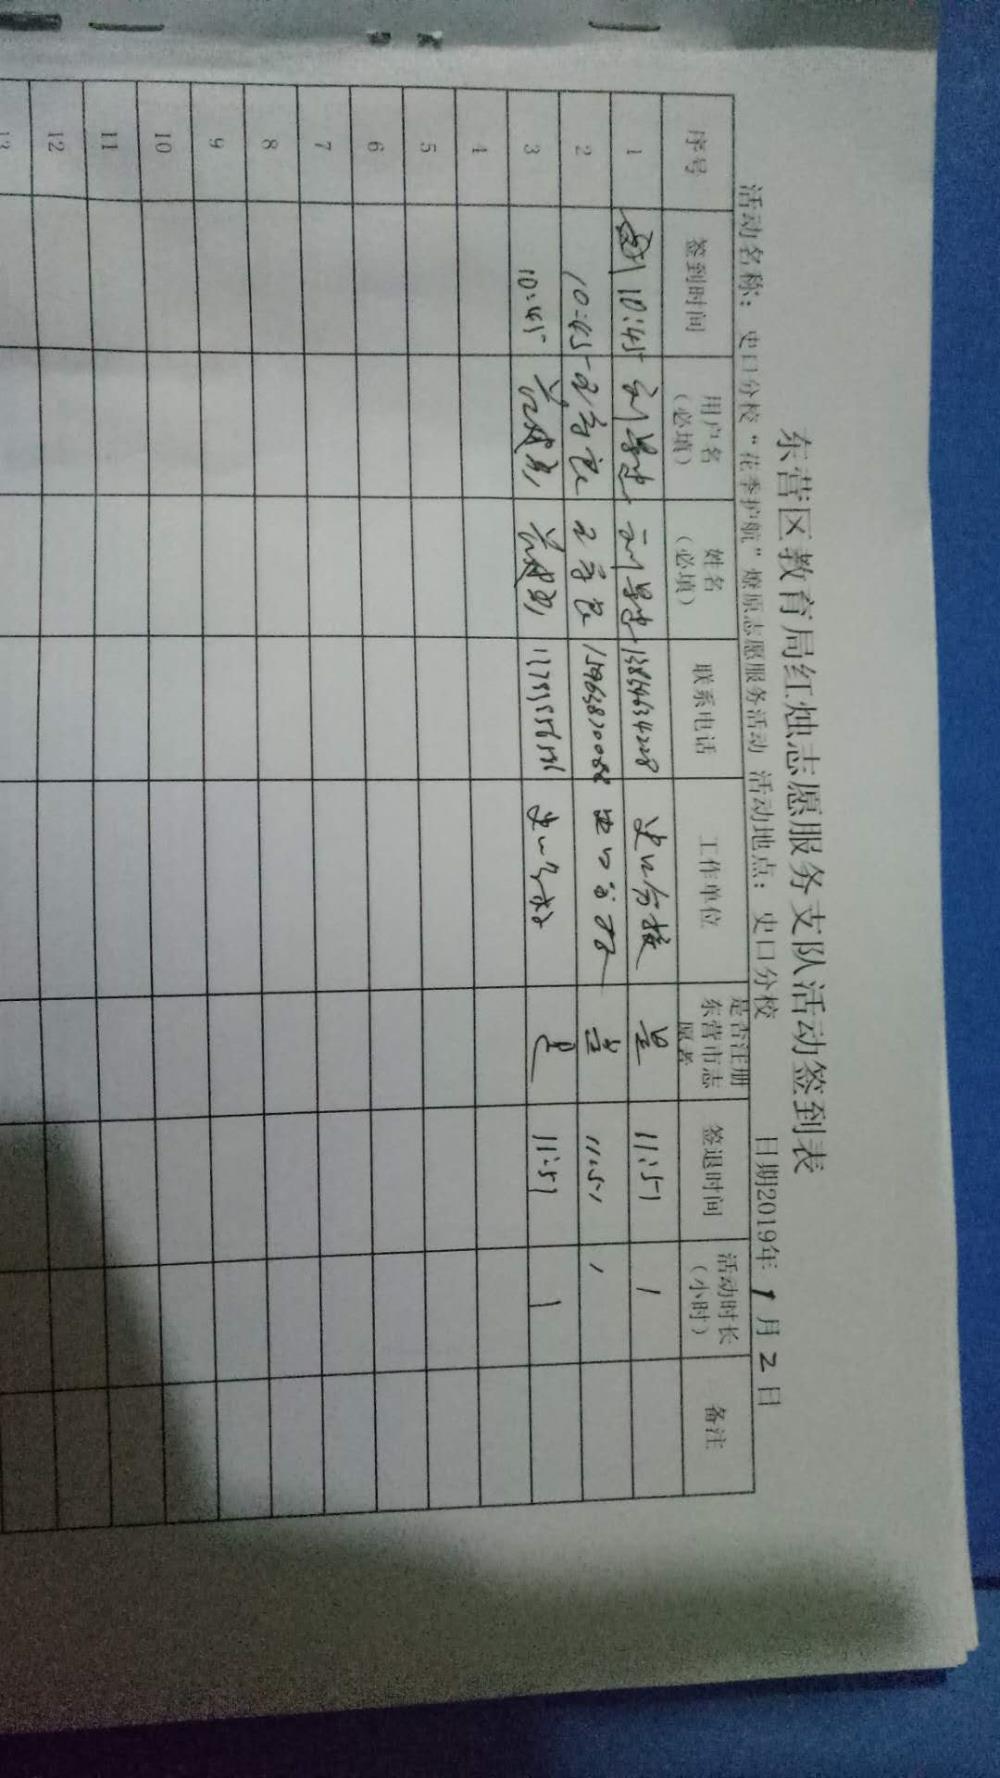 东营区教育局红烛志愿服务支队活动签到表
活动名称： 史口分校“花季护航”燎原志愿服务活动 活动地点： 史口分校 日期2019年 1 月 2 日
序号 签到时间 用户名（必填） 姓名（必填） 联系电话 工作单位 是否注册东营市志愿者 签退时间 活动时长（小时） 备注
1 10:45 13854634228 史口分校 是 11:51 1
2 10:45 史口分校 是 11:51 1
3 10:45 史口分校 是 11:51 1
4
5
6
7
8
9
10
11
12
13